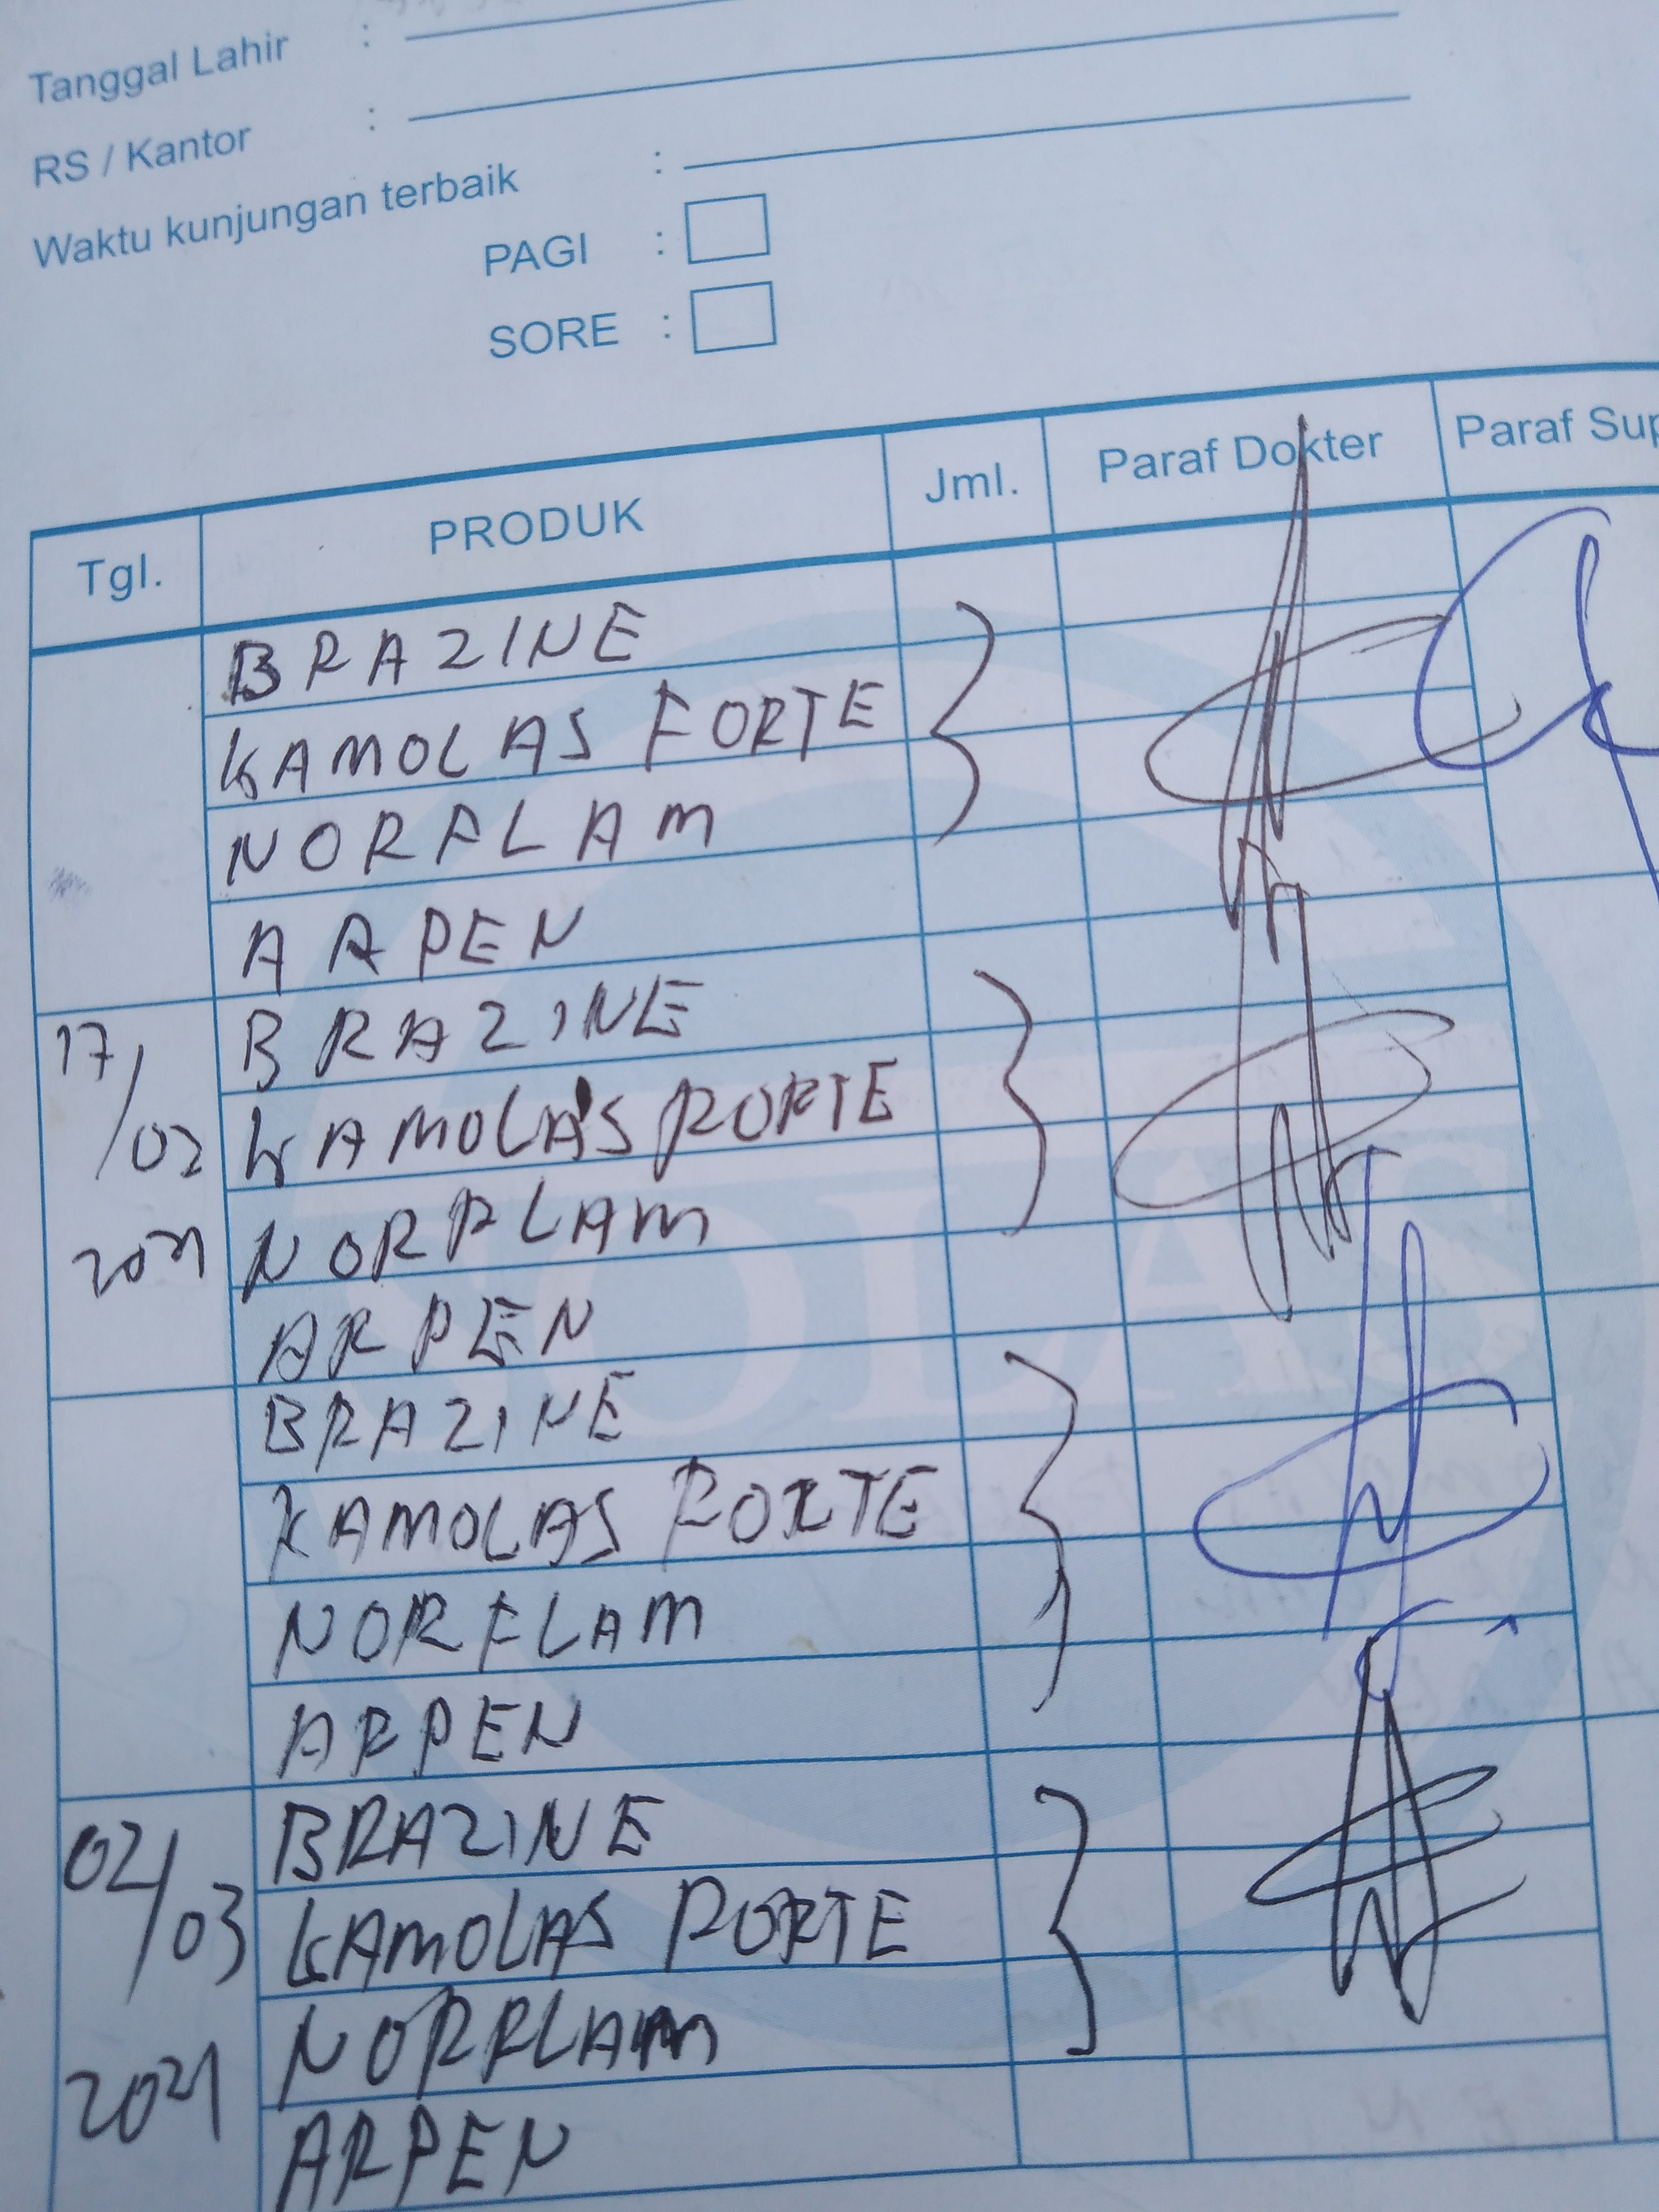 Tanggal Lahir :
RS / Kantor :
Waktu kunjungan terbaik :
PAGI :
SORE :
Tgl. PRODUK Jml. Paraf Dokter Paraf Sup
BRAZINE
KAMOLAS FORTE
NORFLAM
ARPEN
17/02 2021 BRAZINE
KAMOLAS FORTE
NORFLAM
ARPEN
BRAZINE
KAMOLAS FORTE
NORFLAM
ARPEN
02/03 2021 BRAZINE
KAMOLAS FORTE
NORFLAM
ARPEN